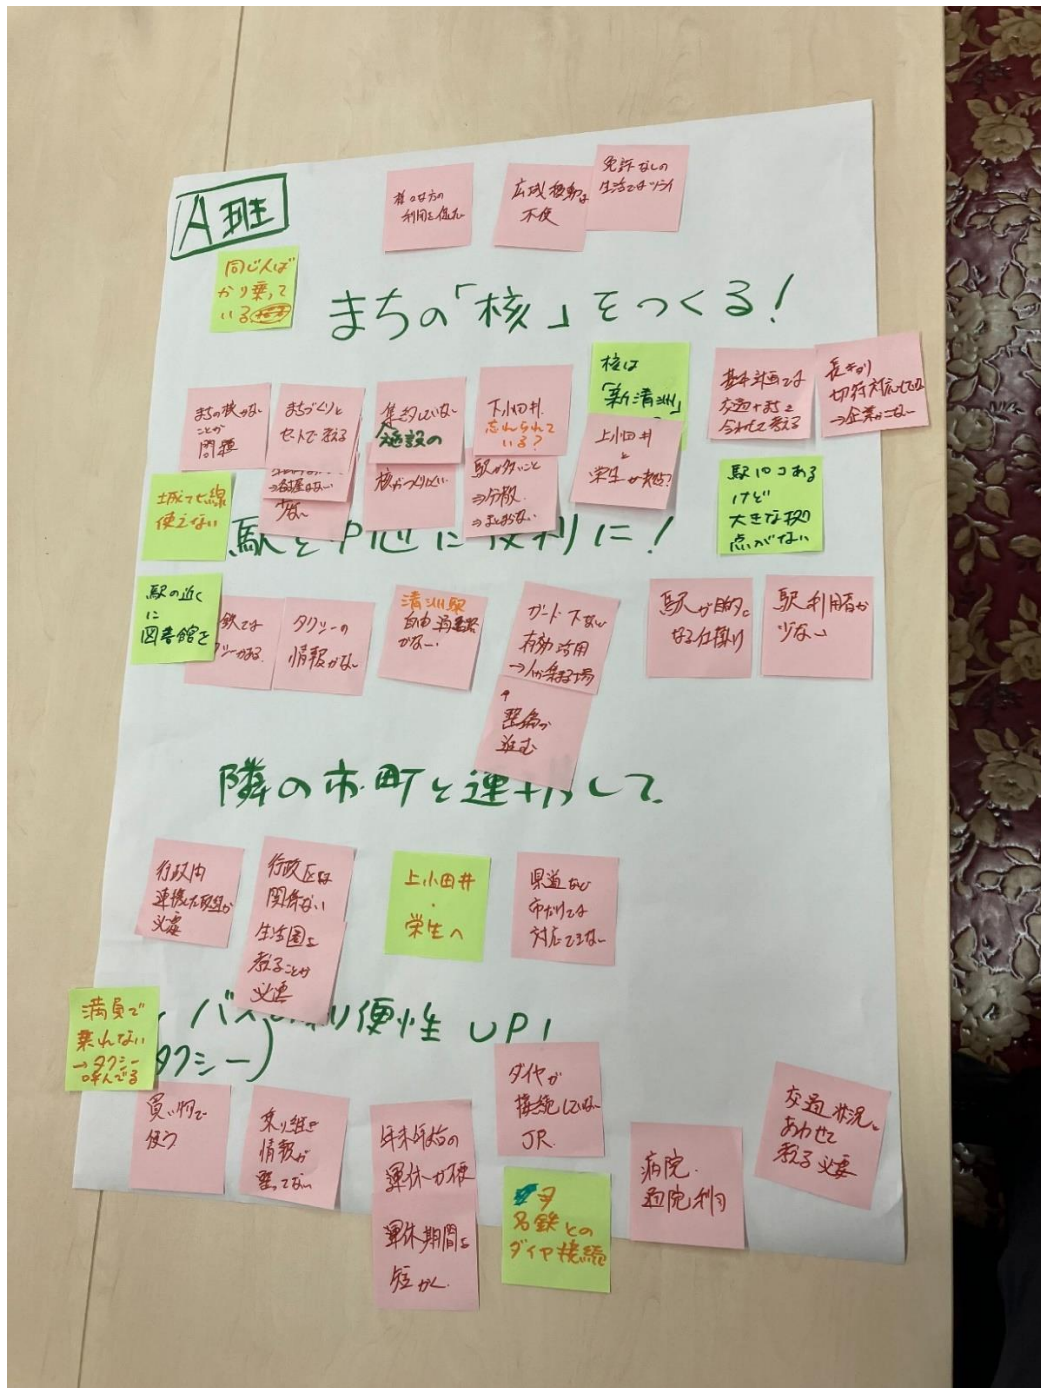 A班
様々な方の
利用を促た
広域移動は
不便
免許なしの
生活ではツライ
同じ人ば
かり乗って
いる
まちの「核」をつくる!
まちの核がない
ことが
問題
まちづくりと
セットで考える
集約していない
施設の
下小田井
忘れられて
いる?
核は
「新清洲」
上小田井
と
栄生が発
基本計画では
交通+まちを
合わせて考える
切符対応してない
→企業がこない
少ない
核がつくりにくい
駅が多いこと
⇒分散
⇒まとまらない
城で七線
使えない
駅10コある
けど
大きな拠
点がない
駅を中心に便利に!
駅の近く
に
図書館を
鉄では
タクシーの
情報がない
清洲駅
自由通路
がない
ガード下など
有効活用
→人が集まる場
↑
整備が
進む
駅が目的に
なる仕掛け
駅利用者が
少ない
隣の市町と連携して
行政内
連携した取組が
必要
行政区は
関係ない
生活圏を
考えることが
必要
上小田井
・
栄生へ
県道など
市だけでは
対応できない
バスの利便性UP!
タクシー)
満員で
乗れない
→タクシー
呼んでる
買い物で
使う
乗り継ぎ
情報が
整ってない
年末年始の
運休が不便
運休期間を
短かく
ダイヤが
接続してない
JR
名鉄との
ダイヤ接続
病院・
通院利用
交通状況に
あわせて
考える必要